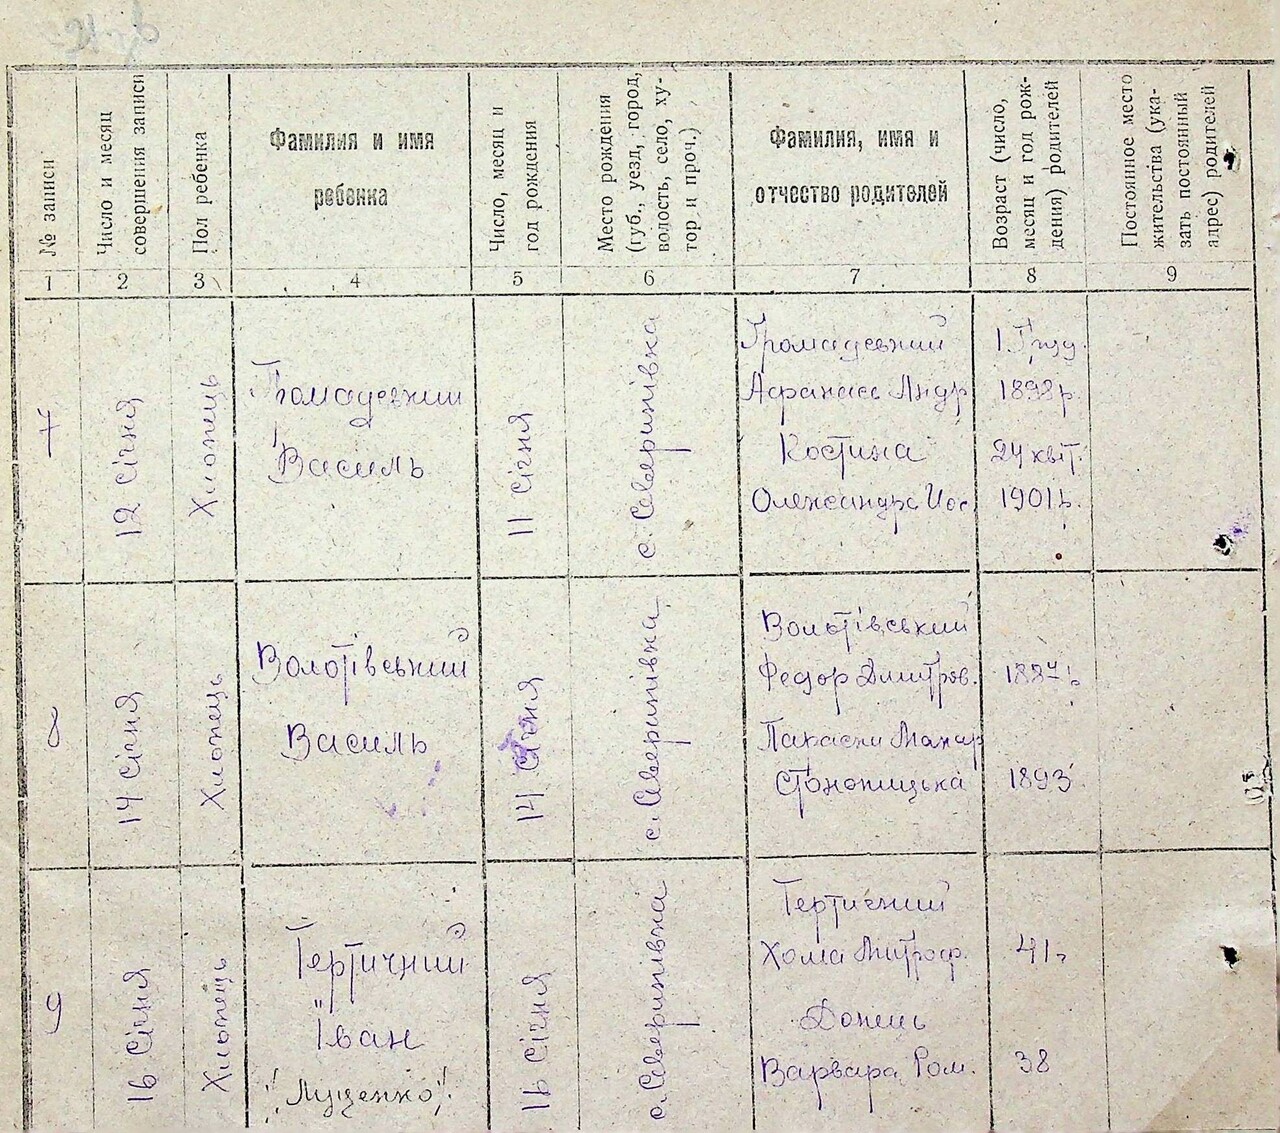 № записи
Число и месяц
совершения записи
Пол ребенка
Фамилия и имя
ребенка
Число, месяц и
год рождения
Место рождения
(губ., уезд, город,
волость, село, ху-
тор и проч.)
Фамилия, имя и
отчество родителей
Возраст (число,
месяц и год рож-
дения) родителей
Постоянное место
жительства (ука-
зать постоянный
адрес) родителей
1 2 3 4 5 6 7 8 9
7
12 січня
Хлопець
Громадський
Василь
11 січня
с. Северинівка
Громадський
Афанась Андр
Костина
Олександра Йос.
1 Груд.
1898 р.
24 квіт.
1901 р.
8
14 січня
Хлопець
Волотівський
Василь
14 січня
с. Северинівка
Волотівський
Федор Дмитров.
Параски Макар
1893
9
16 січня
Хлопець
Тертичний
Іван
"Луценко"
16 січня
с. Северинівка
Тертичний
Хома Митроф.
Донець
Варвара Ром.
41 г
38